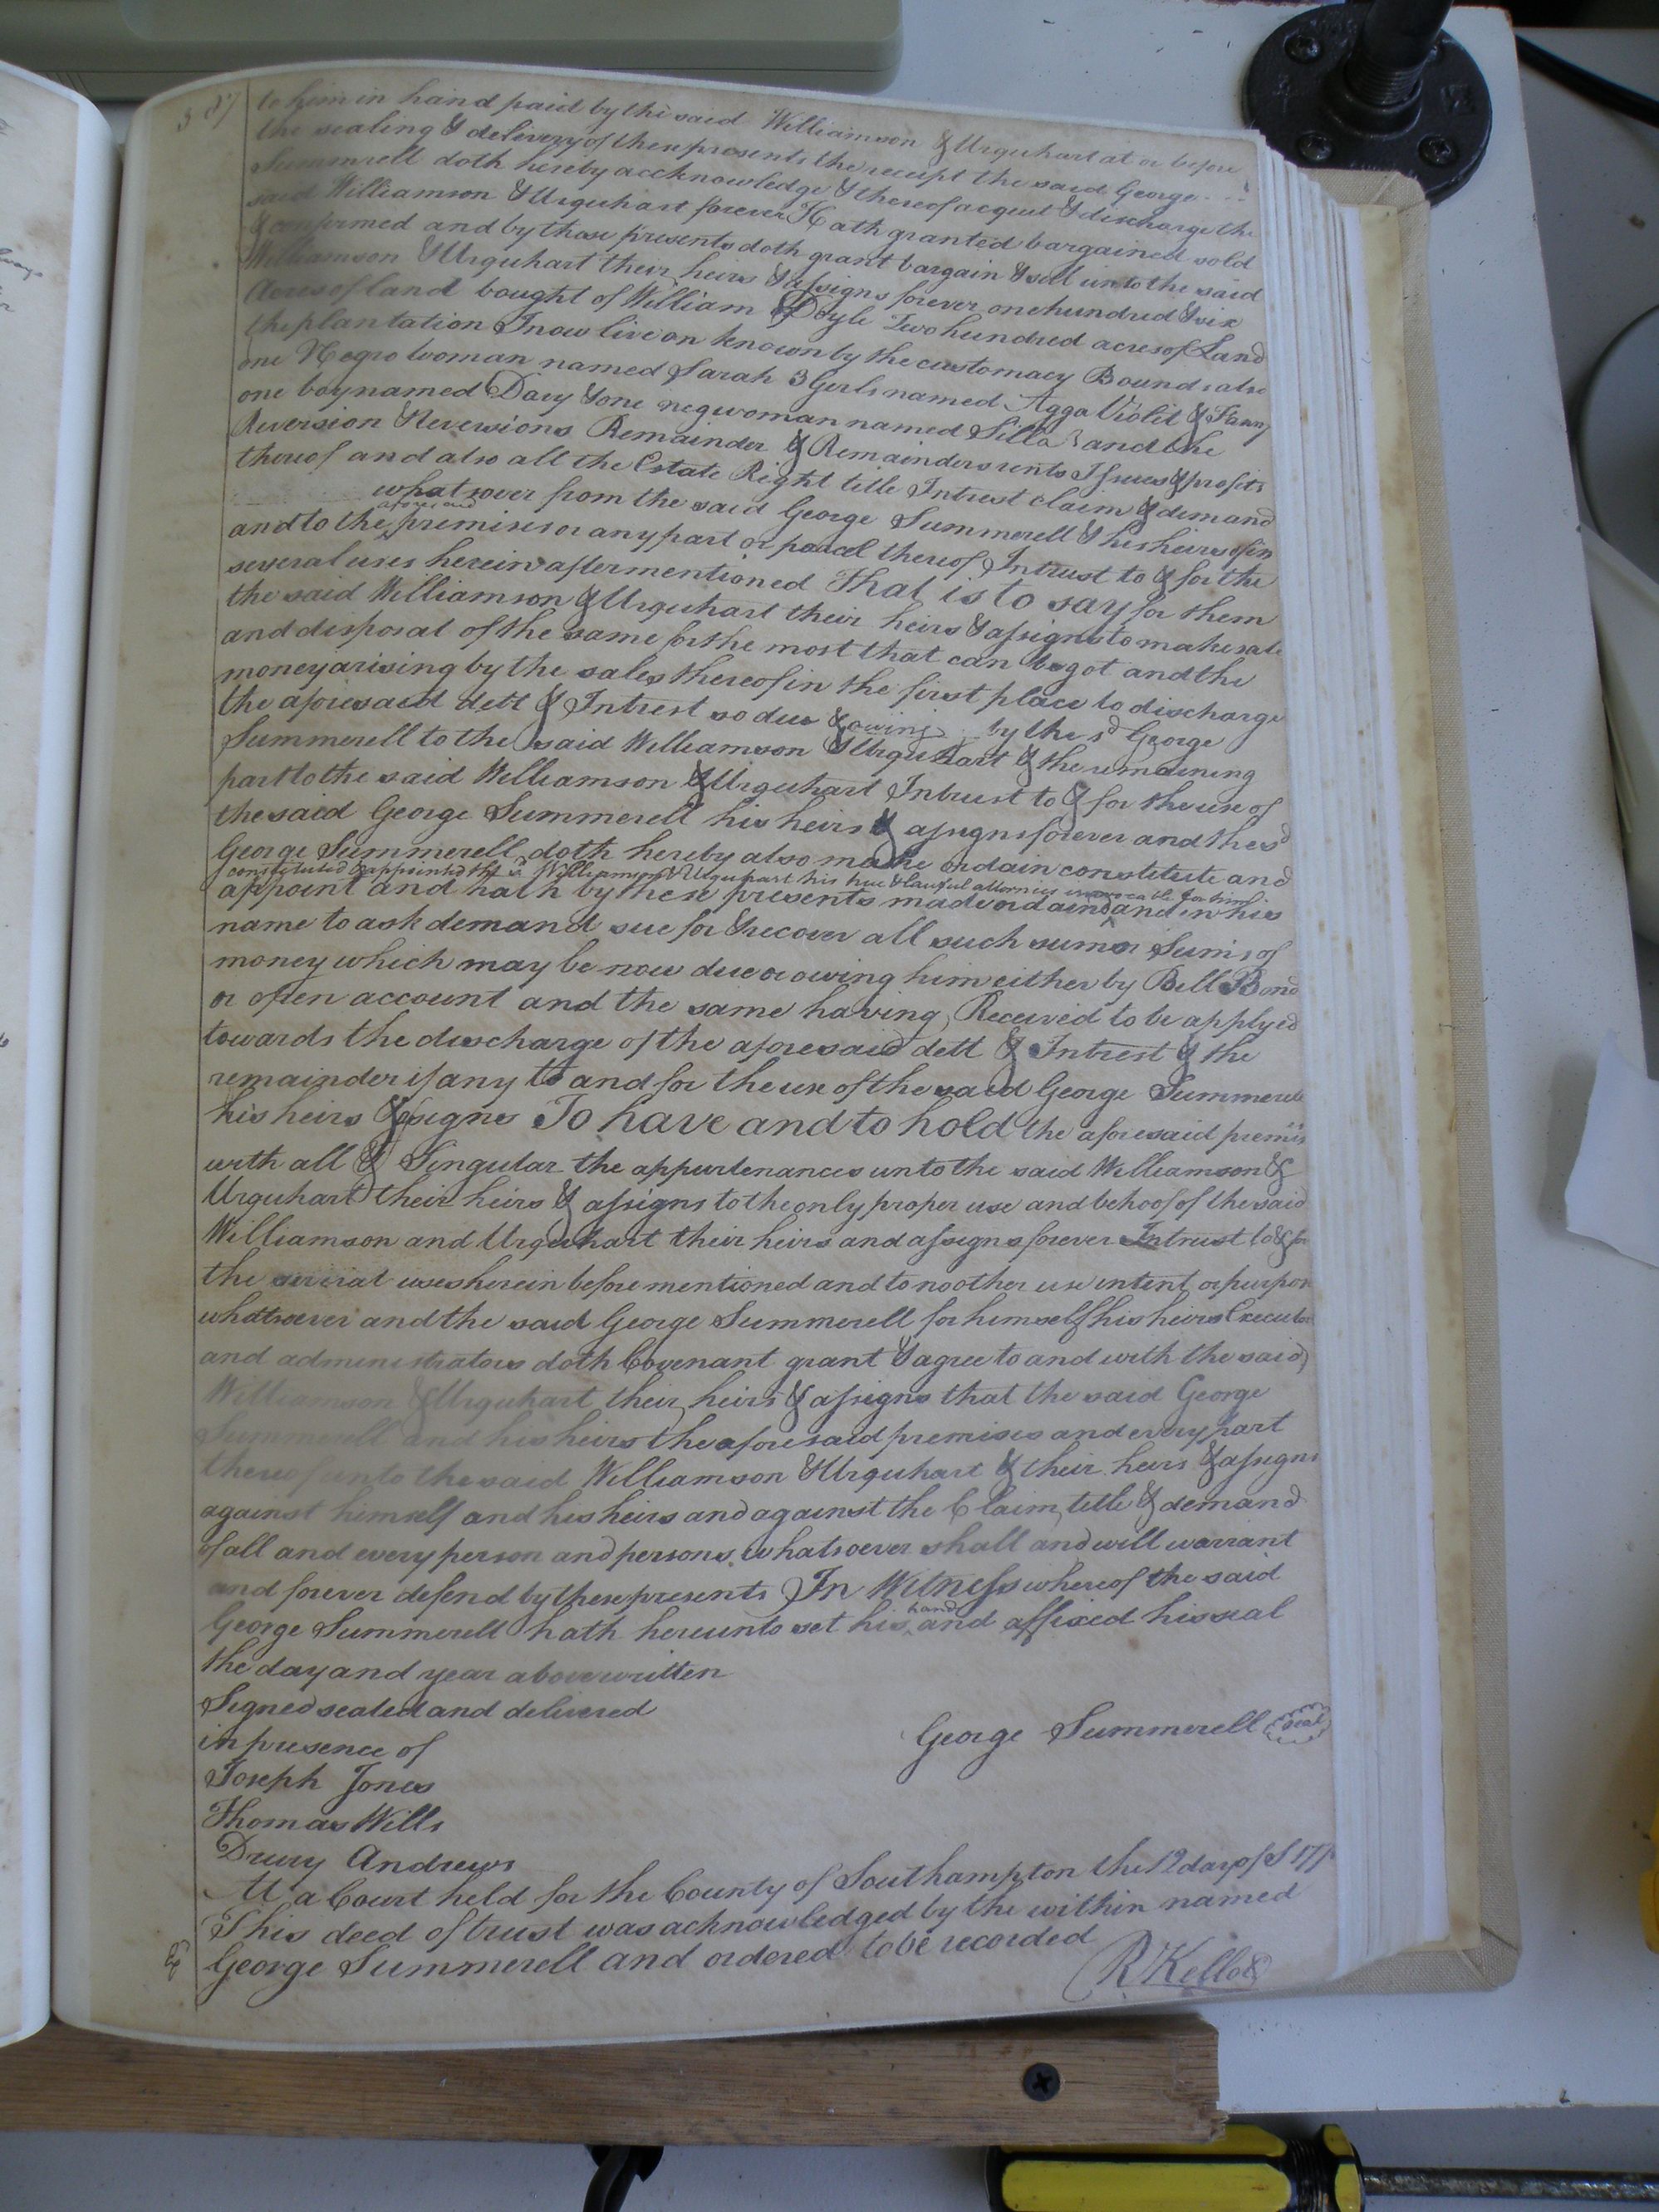 387
to him in hand paid by the said Williamson & Urquhart at or before
the sealing & delivery of these presents the receipt the said George
Summrell doth hereby accknowledge & thereof acquit & discharge the
said Williamson & Urquhart forever Hath granted bargained sold
& confirmed and by these presents doth grant bargain & sell unto the said
Williamson & Urquhart their heirs & assigns forever one hundred & six
Acres of land bought of William Doyle Two hundred acres of Land
the plantation I now live on known by the customacy Bounds also
one Negro woman named Sarah 3 Gerls named Agga Violet & Fanny
one boy named Davy & one neg woman named Silla and the
Reversion & Reversions Remainder & Remainders rents Issues & profits
thereof and also all the Estate Right title Intrest claim & demand
whatsoever from the said George Summerell & his heirs of in
and to the aforesaid premises or any part or parcel thereof Intrust to & for the
several uses herein after mentioned That is to say for them
the said Williamson & Urquhart their heirs & assigns to make sale
and disposal of the same for the most that can be got and the
money arising by the sales thereof in the first place to discharge
the aforesaid dett & Intrest so due & owing by the sd George
Summerell to the said Williamson & Urquhart & the remaining
part to the said Williamson & Urquhart Intrust to & for the use of
the said George Summerell his heirs & assigns forever and the sd
George Summerell doth hereby also make ordain constitute and
constituted & appointed the sd Williamson & Urquhart his true & lawful attornies irrevocable for him
appoint and hath by these presents made ordaind and in his
name to ask demand sue for & recover all such sum or Sums of
money which may be now due or owing him either by Bill Bond
or open account and the same having Received to be applyed
towards the discharge of the aforesaid dett & Intrest & the
remainder if any to and for the use of the said George Summerell
his heirs & assigns To have and to hold the aforesaid premis
with all & Singular the appurtenances unto the said Williamson &
Urquhart their heirs & assigns to the only proper use and behoof of the said
Williamson and Urquhart their heirs and assigns forever Intrust to & for
the several uses herein before mentioned and to no other use intent or purpose
whatsoever and the said George Summerell for himself his heirs Executors
and administrators doth Covenant grant & agree to and with the said
Williamson & Urquhart their heirs & assigns that the said George
Summerell and his heirs the aforesaid premises and every part
thereof unto the said Williamson & Urquhart & their heirs & assigns
against himself and his heirs and against the Claim title & demand
of all and every person and persons whatsoever shall and will warrant
and forever defend by these presents In Witness whereof the said
George Summerell hath hereunto set his hand and affixed his seal
the day and year above written
Signed sealed and delivered
in presence of
George Summerell seal
Joseph Jones
Thomas Wills
Drury Andrews
At a Court held for the County of Southampton the 12 day of
This deed of trust was acknowledged by the within named
George Summerell and ordered to be recorded
R Kello